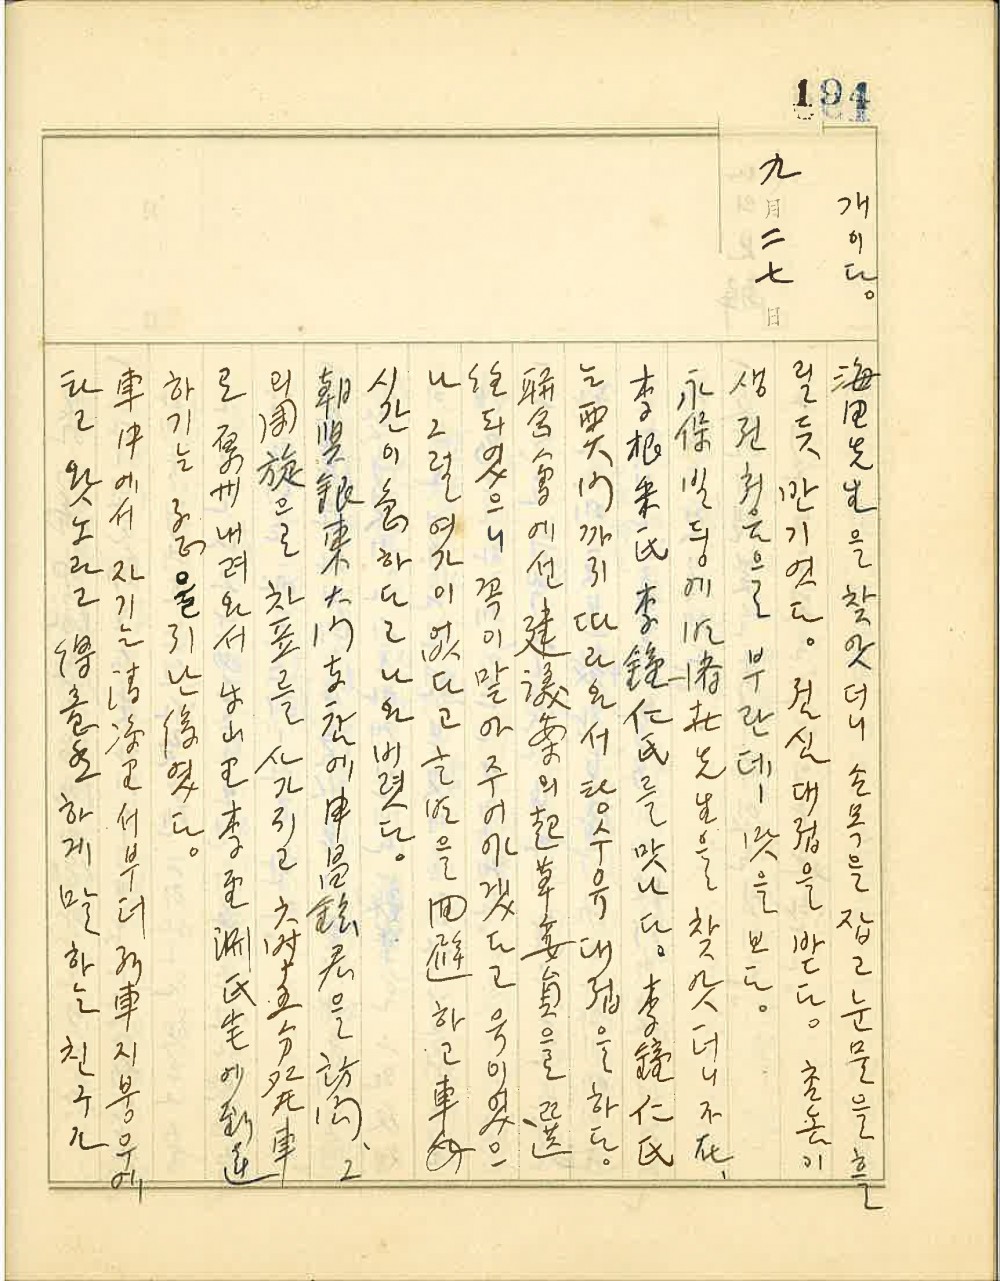 194
개이다。
九月二七日
海田先生을 찾앗더니 손목을 잡고 눈물을 흘
릴듯 반기엿다。 점심 대접을 받다。 촌놈이
생전 처음으로 부란데ー 맛을 보다。
永保빌딩에 先生을 찾앗더니 不在、
李根米氏 李鐘仁氏를 맛나다。 李鐘仁氏
는 西大門까지 따라와서 탕수육 대접을 하다。
聯合會에선 建議案의 起草委員을 選
되였으니 꼭이 맡아 주어야겠다고 욱이였으
나 그럴 여가이 없다고 을 回避하고 車
시간이 急하다고 나와 버렷다。
朝興銀東大門支店에 申昌鉉君을 訪問、그
의 周旋으로 차표를 사가지고 六時十五分發車
로 內려와서 李 淵氏宅에 到達
하기는 子正을 지난 後였다。
車中에서 자기는 淸凉里서부터 列車지붕우에
타고 왓노라고 得意 하게 말하는 친구가